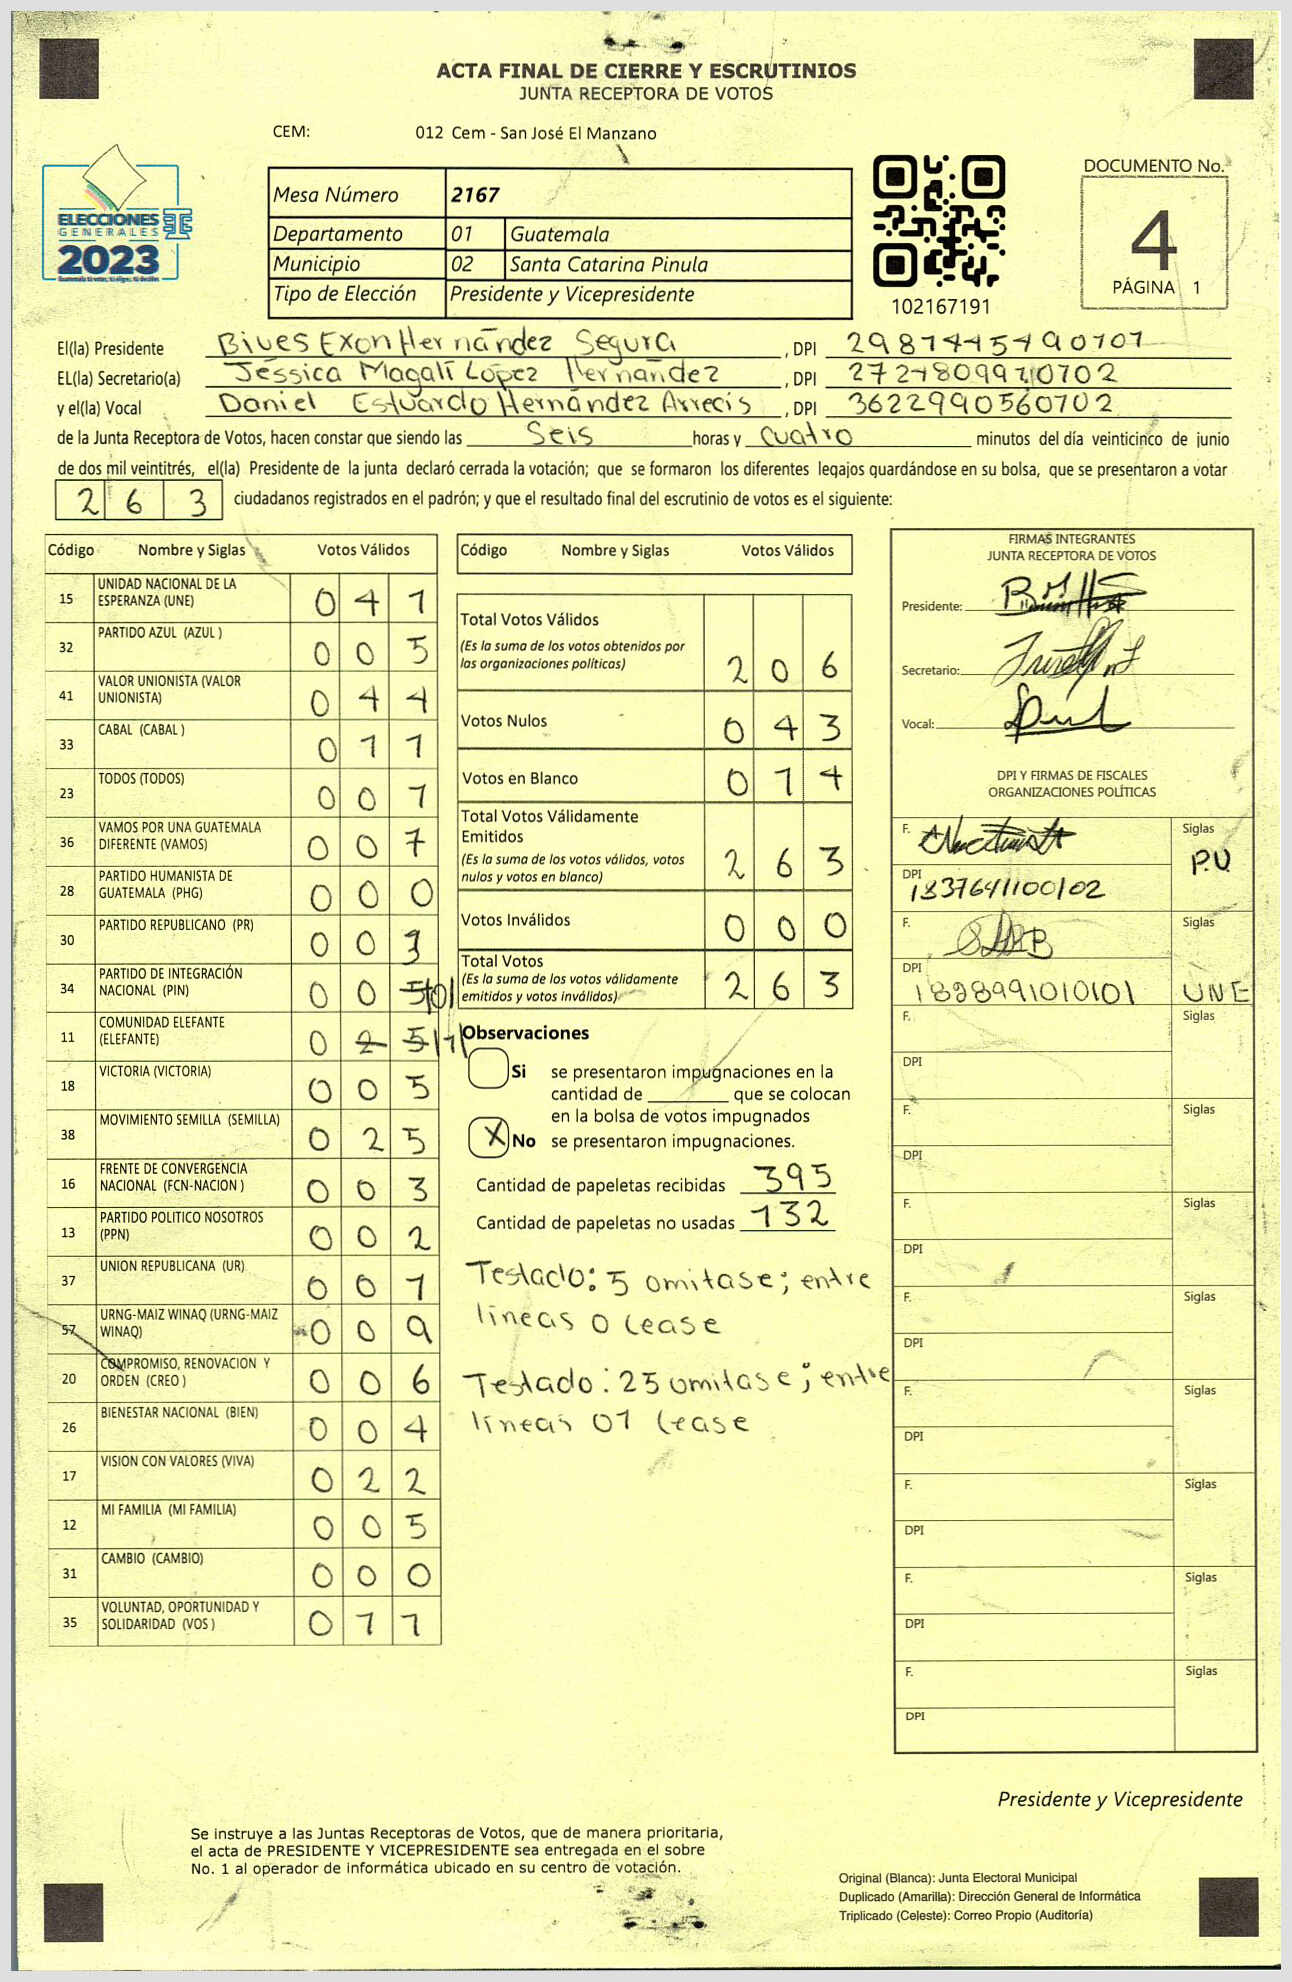 ACTA FINAL DE CIERRE Y ESCRUTINIOS
JUNTA RECEPTORA DE VOTOS
CEM: 012 Cem - San José El Manzano
ELECCIONES
GENERALES
2023
Mesa Número 2167
Departamento 01 Guatemala
Municipio 02 Santa Catarina Pinula
Tipo de Elección Presidente y Vicepresidente
102167191
DOCUMENTO No.
4
PÁGINA 1
El(la) Presidente Biues Exon Hernández Segura, DPI
EL(la) Secretario(a) Jéssica Magalí López Hernández, DPI
y el(la) Vocal Daniel Estuardo Hernández Arrecis, DPI 3622990560702
de la Junta Receptora de Votos, hacen constar que siendo las Seis horas y cuatro minutos del día veinticinco de junio
de dos mil veintitrés, el(la) Presidente de la junta declaró cerrada la votación; que se formaron los diferentes legajos guardándose en su bolsa, que se presentaron a votar
263 ciudadanos registrados en el padrón; y que el resultado final del escrutinio de votos es el siguiente:
Código Nombre y Siglas Votos Válidos
15 UNIDAD NACIONAL DE LA ESPERANZA (UNE) 0 4 1
32 PARTIDO AZUL (AZUL ) 0 0 5
41 VALOR UNIONISTA (VALOR UNIONISTA) 0 4 4
33 CABAL (CABAL ) 0 1 1
23 TODOS (TODOS) 0 0 1
36 VAMOS POR UNA GUATEMALA DIFERENTE (VAMOS) 0 0 7
28 PARTIDO HUMANISTA DE GUATEMALA (PHG) 0 0 0
30 PARTIDO REPUBLICANO (PR) 0 0 3
34 PARTIDO DE INTEGRACIÓN NACIONAL (PIN) 0 0 5 0
11 COMUNIDAD ELEFANTE (ELEFANTE) 0 2 5 1
18 VICTORIA (VICTORIA) 0 0 5
38 MOVIMIENTO SEMILLA (SEMILLA) 0 2 5
16 FRENTE DE CONVERGENCIA NACIONAL (FCN-NACION ) 0 0 3
13 PARTIDO POLITICO NOSOTROS (PPN) 0 0 2
37 UNION REPUBLICANA (UR) 0 0 1
57 URNG-MAIZ WINAQ (URNG-MAIZ WINAQ) 0 0 9
20 COMPROMISO, RENOVACION Y ORDEN (CREO ) 0 0 6
26 BIENESTAR NACIONAL (BIEN) 0 0 4
17 VISION CON VALORES (VIVA) 0 2 2
12 MI FAMILIA (MI FAMILIA) 0 0 5
31 CAMBIO (CAMBIO) 0 0 0
35 VOLUNTAD, OPORTUNIDAD Y SOLIDARIDAD (VOS ) 0 1 1
Código Nombre y Siglas Votos Válidos
Total Votos Válidos
(Es la suma de los votos obtenidos por
las organizaciones políticas) 2 0 6
Votos Nulos 0 4 3
Votos en Blanco 0 1 4
Total Votos Válidamente
Emitidos
(Es la suma de los votos válidos, votos
nulos y votos en blanco) 2 6 3
Votos Inválidos 0 0 0
Total Votos
(Es la suma de los votos válidamente
emitidos y votos inválidos) 2 6 3
Observaciones
Si se presentaron impugnaciones en la
cantidad de ________ que se colocan
en la bolsa de votos impugnados
X No se presentaron impugnaciones.
Cantidad de papeletas recibidas 395
Cantidad de papeletas no usadas 132
Testado: 5 omitase; entre
lineas 0 lease
Testado: 25 omitase; entre
lineas 01 lease
FIRMAS INTEGRANTES
JUNTA RECEPTORA DE VOTOS
Presidente:
Secretario:
Vocal:
DPI Y FIRMAS DE FISCALES
ORGANIZACIONES POLÍTICAS
F. Siglas
P.U.
DPI
F. Siglas
DPI
1828991010101 UNE
F. Siglas
DPI
F. Siglas
DPI
F. Siglas
DPI
F. Siglas
DPI
F. Siglas
DPI
F. Siglas
DPI
F. Siglas
DPI
F. Siglas
DPI
Presidente y Vicepresidente
Se instruye a las Juntas Receptoras de Votos, que de manera prioritaria,
el acta de PRESIDENTE Y VICEPRESIDENTE sea entregada en el sobre
No. 1 al operador de informática ubicado en su centro de votación.
Original (Blanca): Junta Electoral Municipal
Duplicado (Amarilla): Dirección General de Informática
Triplicado (Celeste): Correo Propio (Auditoría)